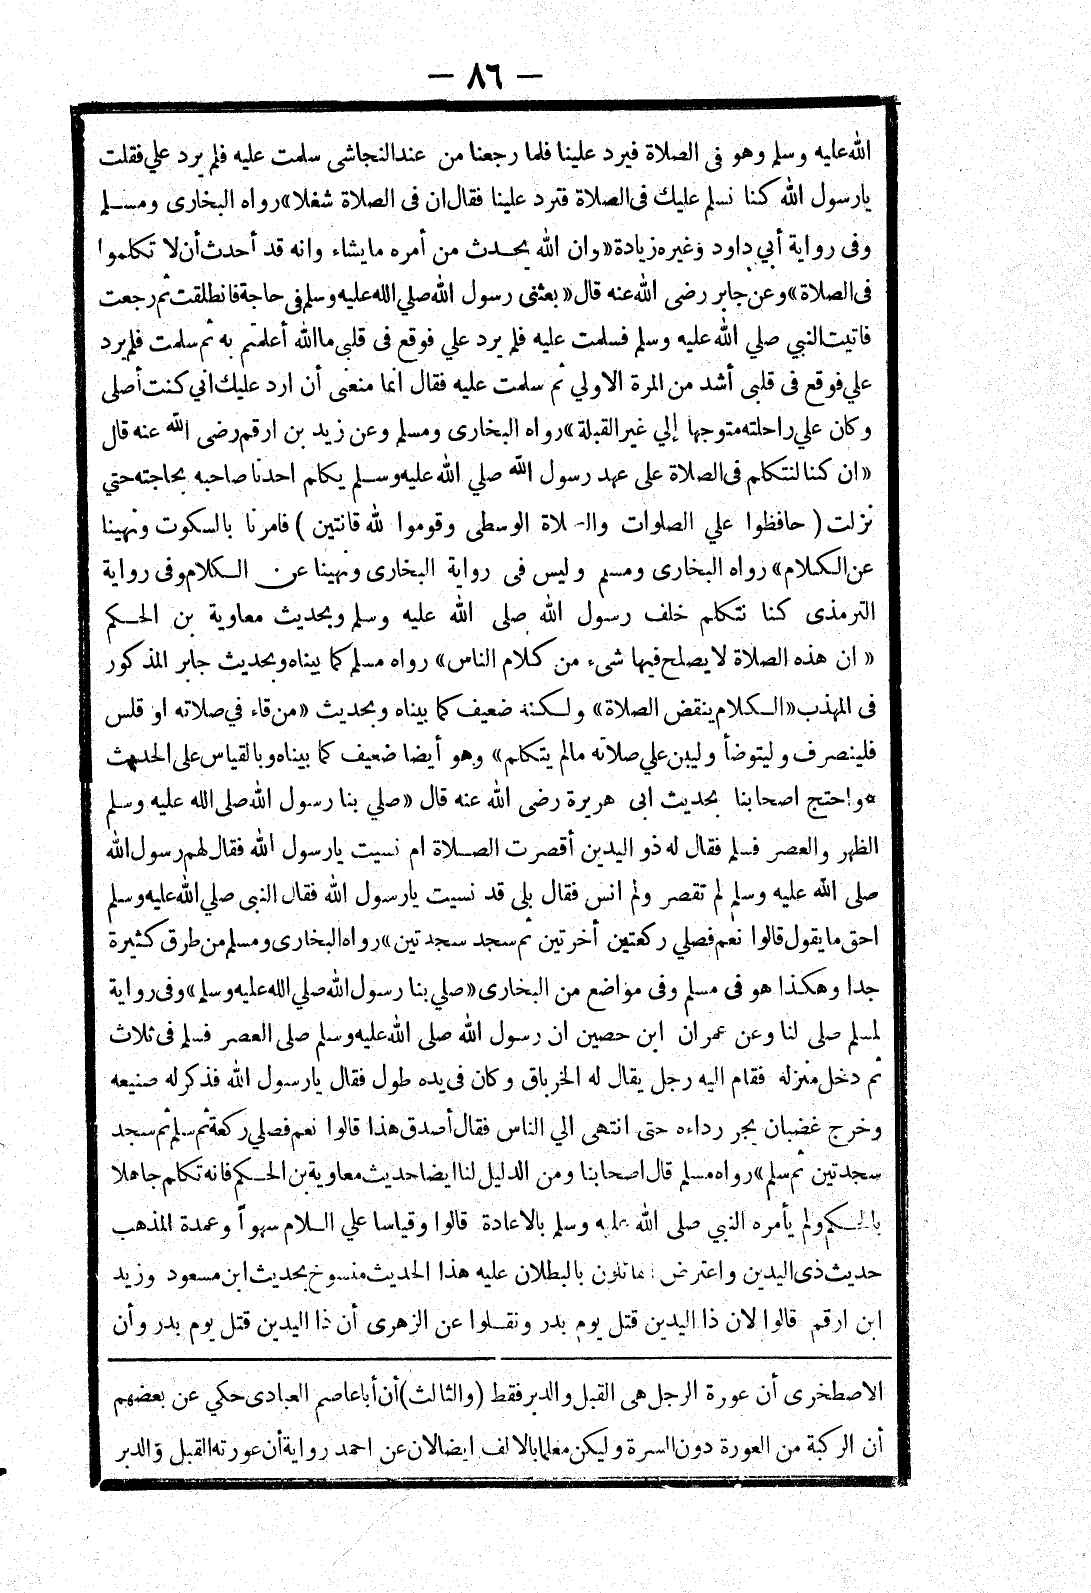 — ٨٦ —
الله عليه وسلم وهو فى الصلاة فيرد علينا فلما رجعنا من عند النجاشى سلمت عليه فلم يرد علي فقلت
يارسول الله كنا نسلم عليك فى الصلاة فترد علينا فقال ان فى الصلاة شغلا» رواه البخارى ومسلم
وفى رواية أبي داود وغيره زيادة «وان الله يحدث من أمره مايشاء وانه قد أحدث أن لا تكلموا
فى الصلاة» وعن جابر رضى الله عنه قال «بعثنى رسول الله صلي الله عليه وسلم فى حاجة فانطلقت ثم رجعت
فاتيت النبي صلي الله عليه وسلم فسلمت عليه فلم يرد علي فوقع فى قلبى ما الله أعلم به ثم سلمت فلم يرد
علي فوقع فى قلبى أشد من المرة الاولي ثم سلمت عليه فقال انما منعنى أن ارد عليك اني كنت أصلى
وكان علي راحلته متوجها إلي غير القبلة» رواه البخارى ومسلم وعن زيد بن ارقم رضى الله عنه قال
«ان كنا لنتكلم فى الصلاة على عهد رسول الله صلي الله عليه وسلم يكلم احدنا صاحبه بحاجته حتي
نزلت (حافظوا علي الصلوات والصلاة الوسطى وقوموا لله قانتين) فامرنا بالسكوت ونهينا
عن الكلام» رواه البخارى ومسلم وليس فى رواية البخارى ونهينا عن الكلام وفى رواية
الترمذى كنا نتكلم خلف رسول الله صلى الله عليه وسلم وبحديث معاوية بن الحكم
«ان هذه الصلاة لا يصلح فيها شىء من كلام الناس» رواه مسلم كما بيناه وبحديث جابر المذكور
فى المهذب «الكلام ينقض الصلاة» ولكنه ضعيف كما بيناه وبحديث «من قاء في صلاته او قلس
فلينصرف وليتوضأ وليبن علي صلاته مالم يتكلم» وهو أيضا ضعيف كما بيناه وبالقياس على الحدث
*واحتج اصحابنا بحديث ابى هريرة رضى الله عنه قال «صلي بنا رسول الله صلى الله عليه وسلم
الظهر والعصر فسلم فقال له ذو اليدين أقصرت الصلاة ام نسيت يارسول الله فقال لهم رسول الله
صلى الله عليه وسلم لم تقصر ولم انس فقال بلى قد نسيت يارسول الله فقال النبى صلي الله عليه وسلم
احق ما يقول قالوا نعم فصلي ركعتين أخرتين ثم سجد سجدتين» رواه البخارى ومسلم من طرق كثيرة
جدا وهكذا هو فى مسلم وفى مواضع من البخارى «صلي بنا رسول الله صلي الله عليه وسلم» وفى رواية
لمسلم صلى لنا وعن عمران ابن حصين ان رسول الله صلى الله عليه وسلم صلى العصر فسلم فى ثلاث
ثم دخل منزله فقام اليه رجل يقال له الخرباق وكان فى يده طول فقال يارسول الله فذكر له صنيعه
وخرج غضبان يجر رداءه حتى انتهى الي الناس فقال أصدق هذا قالوا نعم فصلي ركعة ثم سلم ثم سجد
سجدتين ثم سلم» رواه مسلم قال اصحابنا ومن الدليل لنا ايضا حديث معاوية بن الحكم فانه تكلم جاهلا
بالحكم ولم يأمره النبي صلى الله عليه وسلم بالاعادة قالوا وقياسا علي السلام سهواً وعمدة المذهب
حديث ذى اليدين واعترض القائلون بالبطلان عليه هذا الحديث منسوخ بحديث ابن مسعود وزيد
ابن ارقم قالوا لان ذا اليدين قتل يوم بدر ونقلوا عن الزهرى أن ذا اليدين قتل يوم بدر وأن
الاصطخرى أن عورة الرجل هى القبل والدبر فقط (والثالث) أن أبا عاصم العبادى حكي عن بعضهم
أن الركبة من العورة دون السرة وليكن معلما بالالف ايضا لان عن احمد رواية أن عورته القبل والدبر